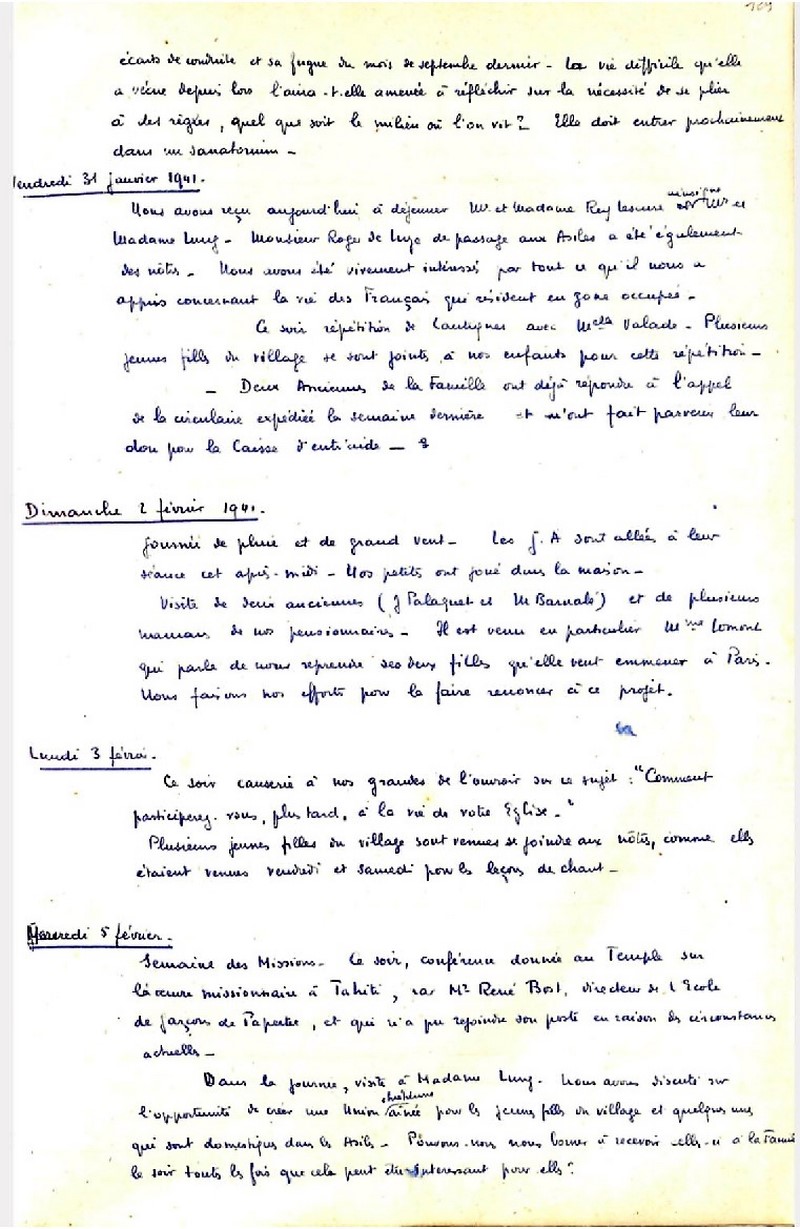 109
écarts de conduite et sa fugue du mois de septembre dernier - La vie difficile qu'elle
a vécue depuis lors l'aura-t-elle amenée à réfléchir sur la nécessité de se plier
à des règles, quel que soit le milieu où l'on vit ? Elle doit entrer prochainement
dans un sanatorium -
Vendredi 31 janvier 1941.
Nous avons reçu aujourd'hui à déjeuner Mr et Madame Rey Lescure ainsi que Mr et
Madame Lung - Monsieur Roger de Luze de passage aux Asiles a été également
des nôtres - Nous avons été vivement intéressés par tout ce qu'il nous a
appris concernant la vie des Français qui résident en zone occupée -
Ce soir répétition de Cantiques avec Melle Valade - Plusieurs
jeunes filles du village se sont jointes à nos enfants pour cette répétition -
- Deux Anciennes de la Famille ont déjà répondre à l'appel
de la circulaire expédiée la semaine dernière et m'ont fait parvenir leur
don pour la Caisse d'entr'aide -
Dimanche 2 février 1941.
Journée de pluie et de grand vent - Les J. A sont allées à leur
séance cet après-midi - Nos petits ont joué dans la maison -
Visite de deux anciennes (J Palaquet et M Barnabé) et de plusieurs
mamans de nos pensionnaires - Il est venu en particulier Mme Lomont
qui parle de nous reprendre ses deux filles qu'elle veut emmener à Paris.
Nous faisons nos efforts pour la faire renoncer à ce projet.
Lundi 3 février.
Ce soir causerie à nos grandes de l'ouvroir sur ce sujet : "Comment
participerez-vous, plus tard, à la vie de votre Eglise."
Plusieurs jeunes filles du village sont venues se joindre aux nôtres, comme elles
étaient venues vendredi et samedi pour les leçons de chant -
Mercredi 5 février -
Semaine des Missions - Ce soir, conférence donnée au Temple sur
l'œuvre missionnaire à Tahiti, par Mr René Bost, directeur de l'Ecole
de garçons de Papeete, et qui n'a pu rejoindre son poste en raison des circonstances
actuelles -
Dans la journée, visite à Madame Lung. Nous avons discuté sur
l'opportunité de créer une Union chrétienne aînée pour les jeunes filles du village et quelques unes
qui sont domestiques dans les Asiles - Pouvons-nous nous borner à recevoir celles-ci à la Famille
le soir toutes les fois que cela peut être intéressant pour elles ?